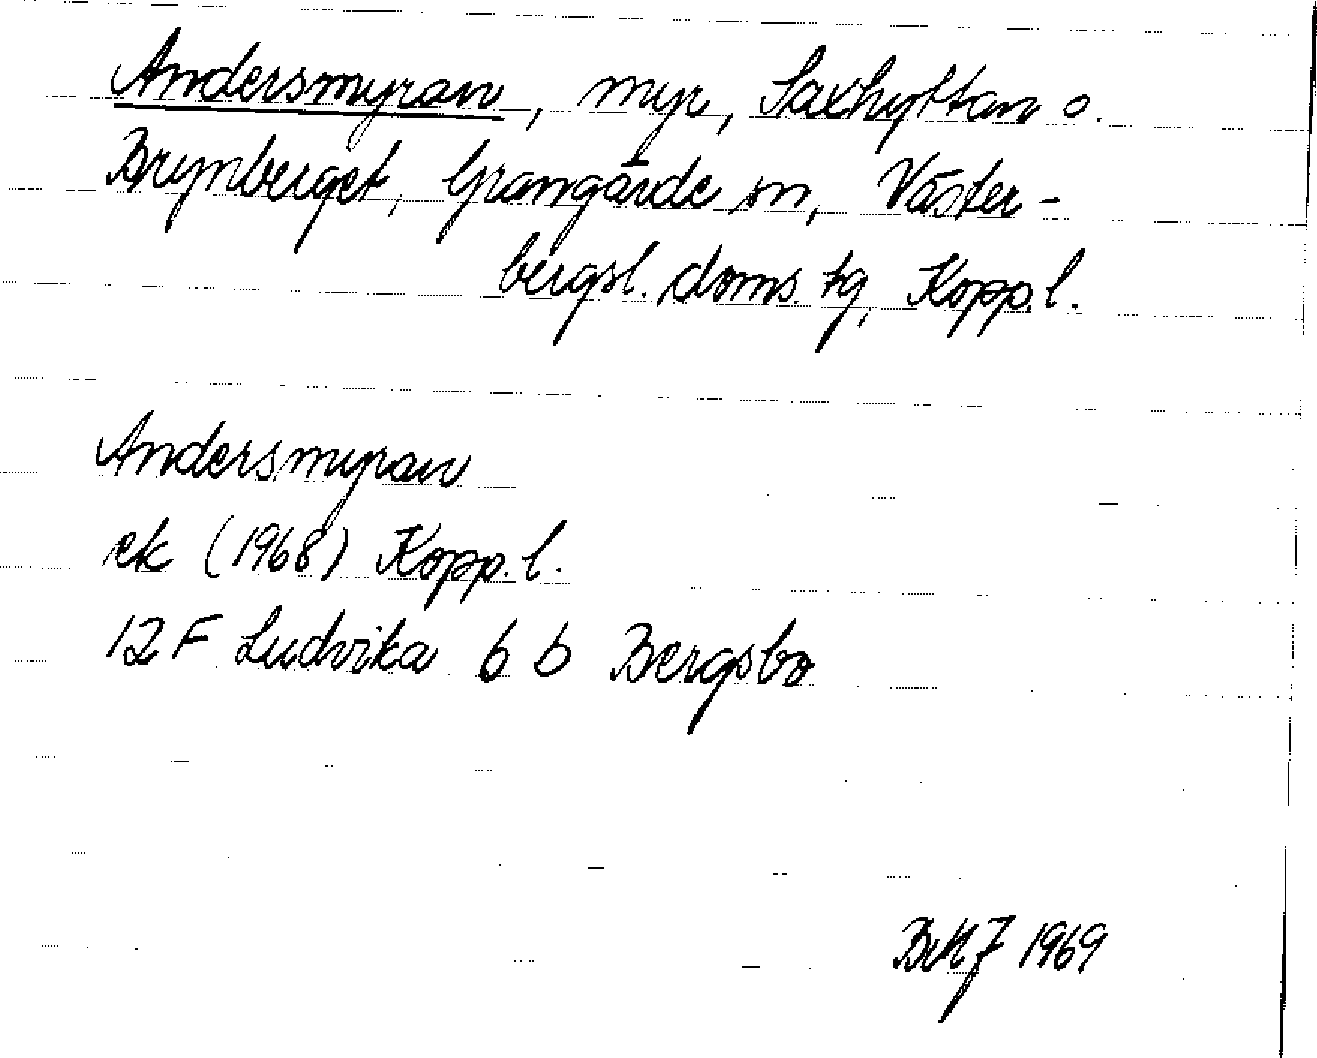 Andersmyran, myr, Saxhyttan o.
Brynberget, Grangärde sn, Väster-
bergsl. doms. tg, Kopp. l.
Andersmyran
ek (1968) Kopp. l.
12 F Ludvika 6 b Bergsbo
1969